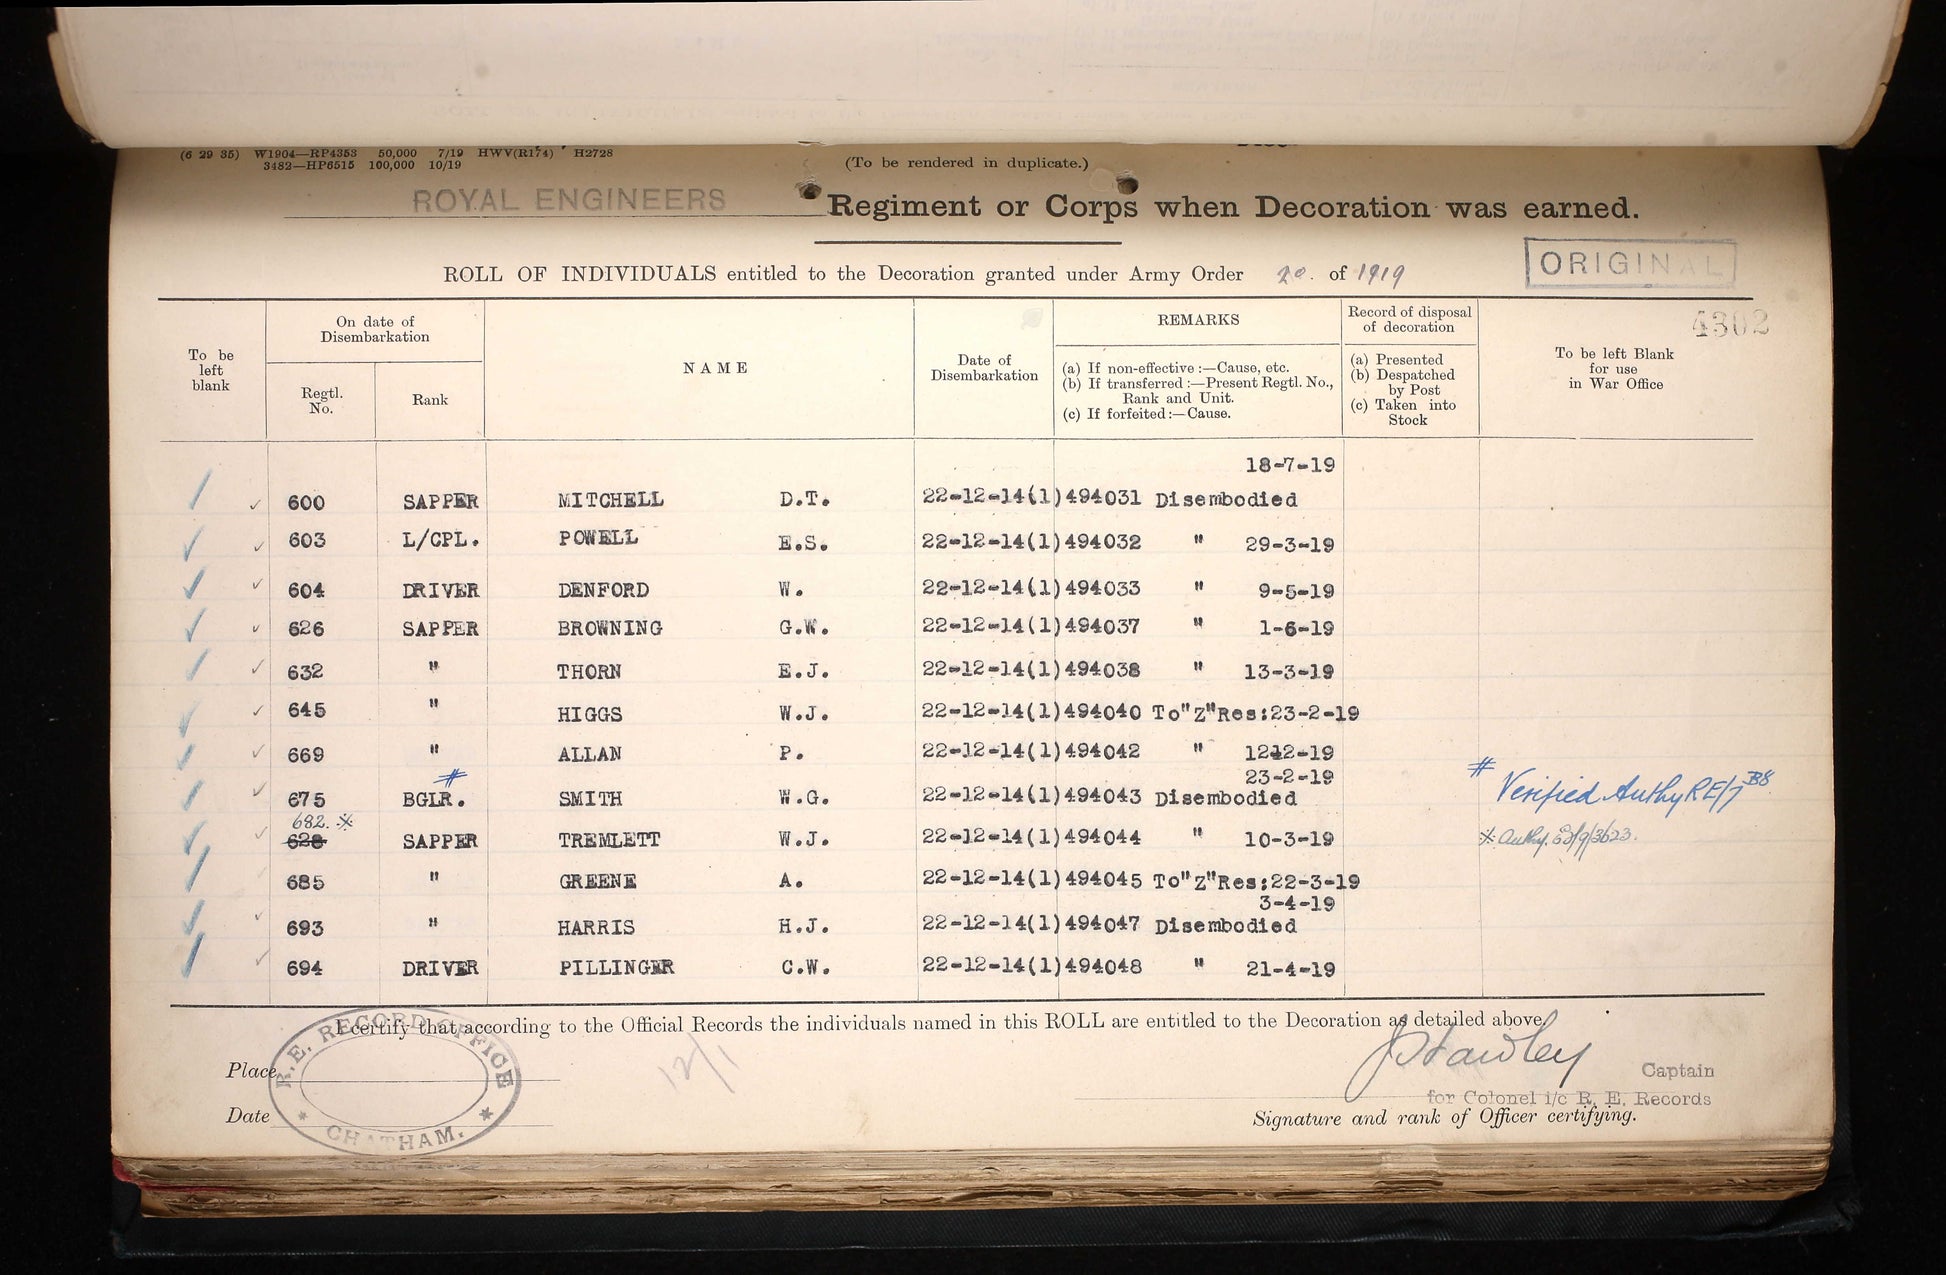 (6 29 35) W1904—RP4353 50,000 7/19 HWV(R174) H2728
3482—HP6515 100,000 10/19
(To be rendered in duplicate.)
ROYAL ENGINEERS Regiment or Corps when Decoration was earned.
ROLL OF INDIVIDUALS entitled to the Decoration granted under Army Order 20. of 1919
ORIGINAL
4302
To be left blank
On date of Disembarkation
Regtl. No.
Rank
NAME
Date of Disembarkation
REMARKS
(a) If non-effective :—Cause, etc.
(b) If transferred :—Present Regtl. No., Rank and Unit.
(c) If forfeited :—Cause.
Record of disposal of decoration
(a) Presented
(b) Despatched by Post
(c) Taken into Stock
To be left Blank for use in War Office
18-7-19
600 SAPPER MITCHELL D.T. 22-12-14(1) 494031 Disembodied
603 L/CPL. POWELL E.S. 22-12-14(1) 494032 " 29-3-19
604 DRIVER DENFORD W. 22-12-14(1) 494033 " 9-5-19
626 SAPPER BROWNING G.W. 22-12-14(1) 494037 " 1-6-19
632 " THORN E.J. 22-12-14(1) 494038 " 13-3-19
645 " HIGGS W.J. 22-12-14(1) 494040 To"Z"Res:23-2-19
669 " ALLAN P. 22-12-14(1) 494042 " 1212-19
23-2-19
675 BGLR. # SMITH W.G. 22-12-14(1) 494043 Disembodied # Verified Authy RE/7 B8.
682. ※
628 SAPPER TREMLETT W.J. 22-12-14(1) 494044 " 10-3-19 ※ Authy. 68/9/3623.
685 " GREENE A. 22-12-14(1) 494045 To"Z"Res:22-3-19
3-4-19
693 " HARRIS H.J. 22-12-14(1) 494047 Disembodied
694 DRIVER PILLINGER C.W. 22-12-14(1) 494048 " 21-4-19
I certify that according to the Official Records the individuals named in this ROLL are entitled to the Decoration as detailed above.
R.E. RECORD OFFICE
CHATHAM.
12/1
Place
Date
Captain
for Colonel i/c R. E. Records
Signature and rank of Officer certifying.